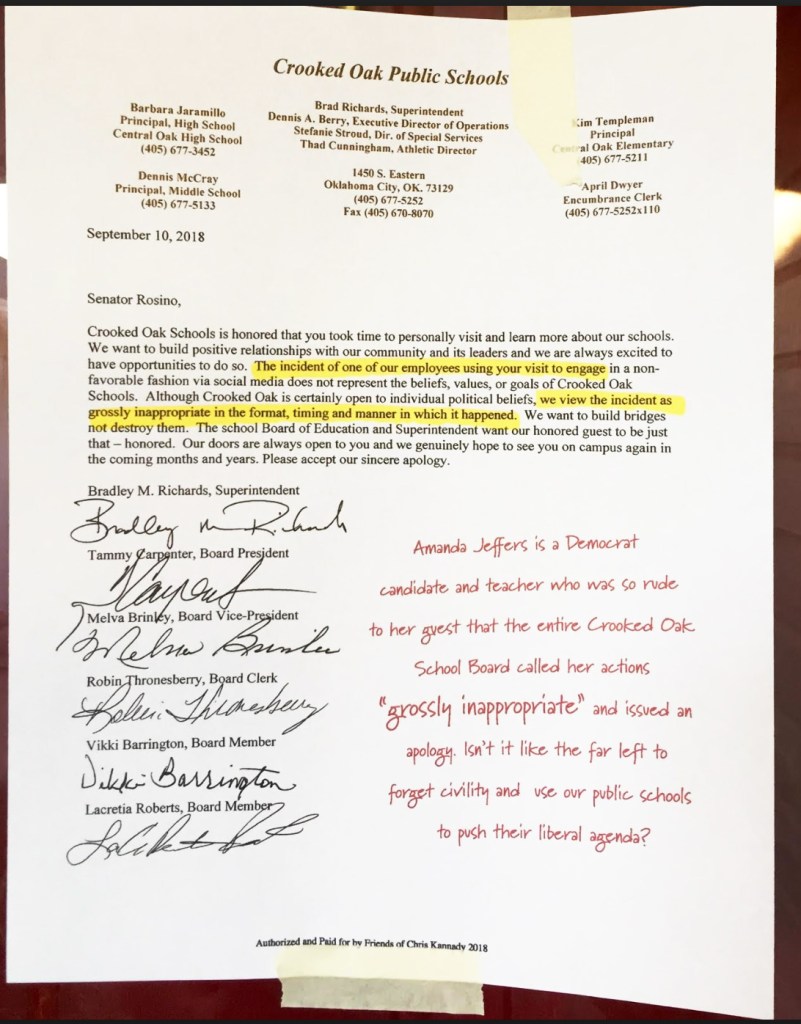 Crooked Oak Public Schools
Barbara Jaramillo
Principal, High School
Central Oak High School
(405) 677-3452
Dennis McCray
Principal, Middle School
(405) 677-5133
Brad Richards, Superintendent
Dennis A. Berry, Executive Director of Operations
Stefanie Stroud, Dir. of Special Services
Thad Cunningham, Athletic Director
1450 S. Eastern
Oklahoma City, OK. 73129
(405) 677-5252
Fax (405) 670-8070
Kim Templeman
Principal
Central Oak Elementary
(405) 677-5211
April Dwyer
Encumbrance Clerk
(405) 677-5252x110
September 10, 2018
Senator Rosino,
Crooked Oak Schools is honored that you took time to personally visit and learn more about our schools.
We want to build positive relationships with our community and its leaders and we are always excited to
have opportunities to do so. The incident of one of our employees using your visit to engage in a non-
favorable fashion via social media does not represent the beliefs, values, or goals of Crooked Oak
Schools. Although Crooked Oak is certainly open to individual political beliefs, we view the incident as
grossly inappropriate in the format, timing and manner in which it happened. We want to build bridges
not destroy them. The school Board of Education and Superintendent want our honored guest to be just
that – honored. Our doors are always open to you and we genuinely hope to see you on campus again in
the coming months and years. Please accept our sincere apology.
Bradley M. Richards, Superintendent
Bradley M Richards
Tammy Carpenter, Board President
Melva Brinley, Board Vice-President
Melva Brinley
Robin Thronesberry, Board Clerk
Robin Thronesberry
Vikki Barrington, Board Member
Vikki Barrington
Lacretia Roberts, Board Member
Amanda Jeffers is a Democrat
candidate and teacher who was so rude
to her guest that the entire Crooked Oak
School Board called her actions
"grossly inappropriate" and issued an
apology. Isn't it like the far left to
forget civility and use our public schools
to push their liberal agenda?
Authorized and Paid for by Friends of Chris Kannady 2018